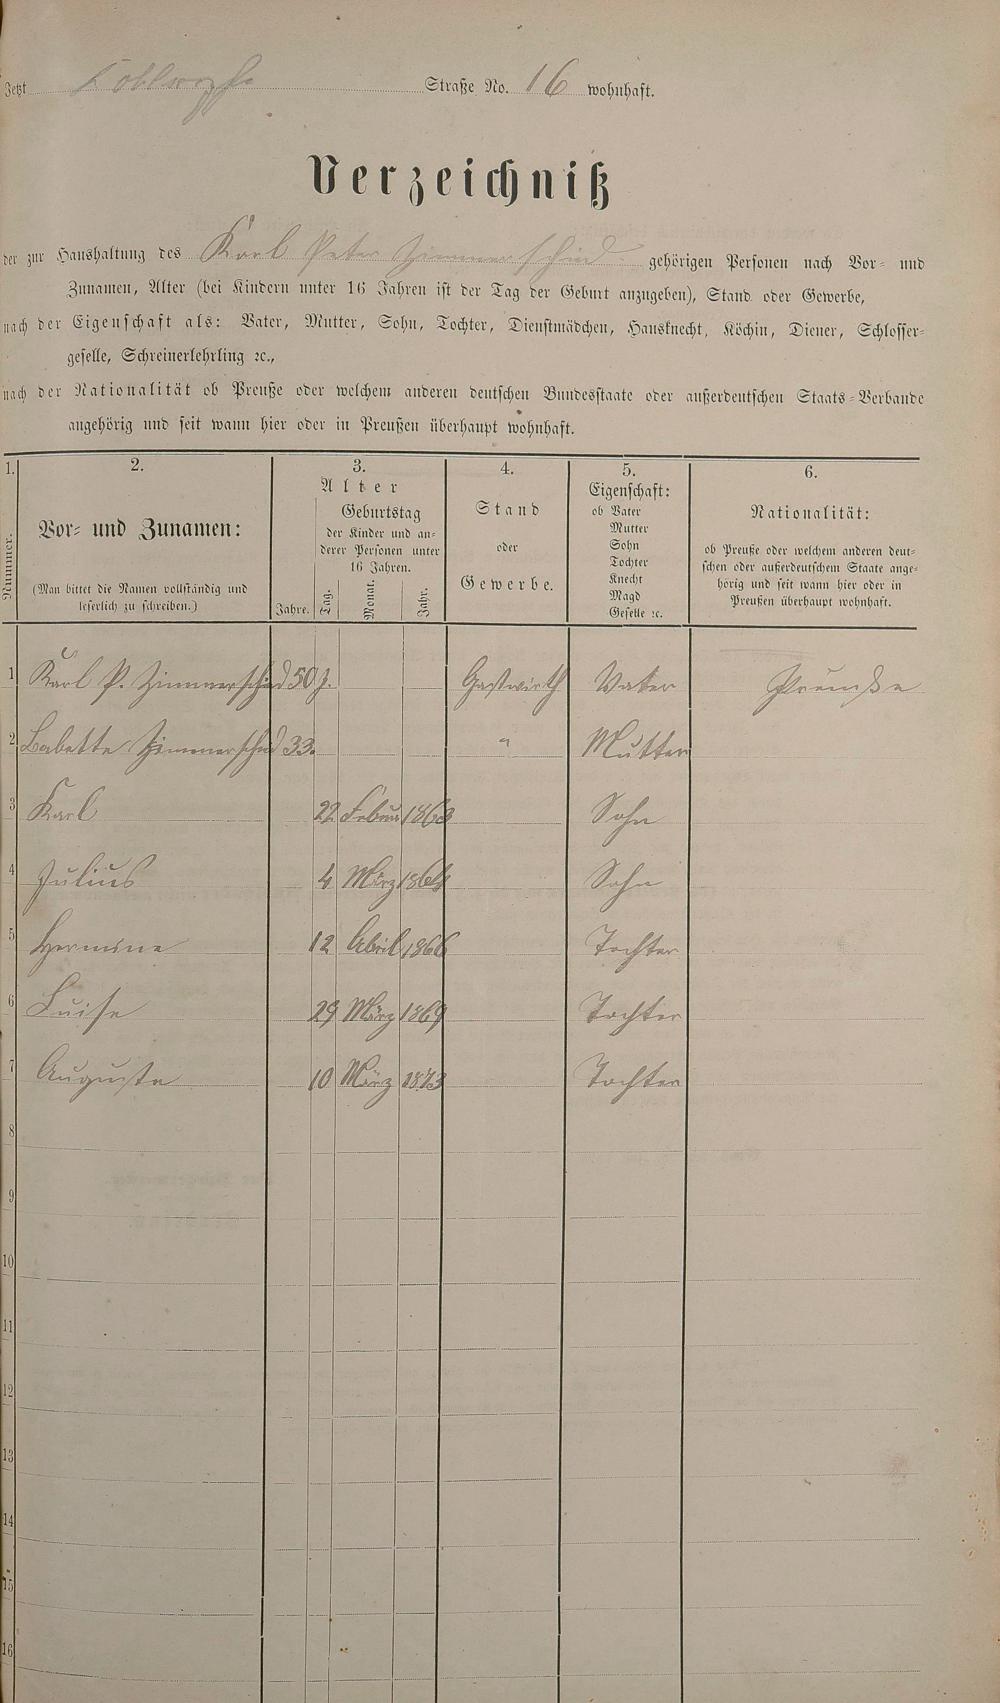 Jetzt Straße No. 16 wohnhaft.
Verzeichniß
der zur Haushaltung des Karl Peter Zimmerschied gehörigen Personen nach Vor- und
Zunamen, Alter (bei Kindern unter 16 Jahren ist der Tag der Geburt anzugeben), Stand oder Gewerbe,
nach der Eigenschaft als: Vater, Mutter, Sohn, Tochter, Dienstmädchen, Hausknecht, Köchin, Diener, Schlosser-
geselle, Schreinerlehrling ꝛc.,
nach der Nationalität ob Preuße oder welchem anderen deutschen Bundesstaate oder außerdeutschen Staats-Verbande
angehörig und seit wann hier oder in Preußen überhaupt wohnhaft.
1. 2. 3. 4. 5. 6.
Nummer.
Vor- und Zunamen:
(Man bittet die Namen vollständig und
leserlich zu schreiben.)
Alter
Jahre.
Geburtstag
der Kinder und an-
derer Personen unter
16 Jahren.
Tag. Monat. Jahr.
Stand
oder
Gewerbe.
Eigenschaft:
ob Vater
Mutter
Sohn
Tochter
Knecht
Magd
Geselle ꝛc.
Nationalität:
ob Preuße oder welchem anderen deut-
schen oder außerdeutschem Staate ange-
hörig und seit wann hier oder in
Preußen überhaupt wohnhaft.
1 Karl P. Zimmerschied 50 J. Gastwirth Vater Preuße
2 Babette Zimmerschied 33. " Mutter
3 Karl 22 Februar 1863 Sohn
4 Julius 4 März 1864 Sohn
5 Hermine 12 April 1866 Tochter
6 Luise 29 März 1869 Tochter
7 Auguste 10 März 1873 Tochter
8
9
10
11
12
13
14
15
16